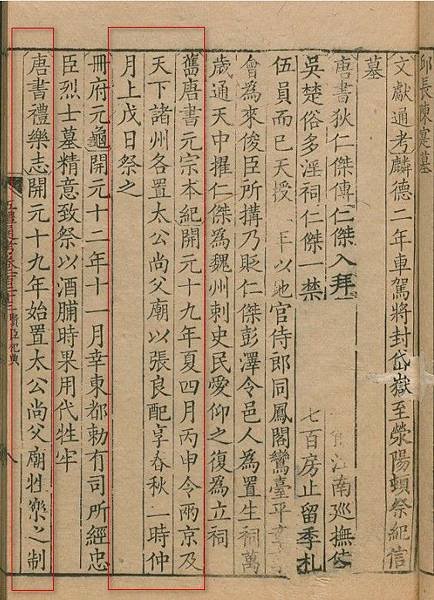 文獻通考麟德二年車駕將封岱嶽至滎陽頓祭紀信
墓
唐書狄仁傑傳仁傑入拜 江南廵撫使
吳楚俗多淫祠仁傑一禁 七百房止留季札
伍員而已天授 年以地官侍郎同鳳閣鸞臺平
會為來俊臣所搆乃貶仁傑彭澤令邑人為置生祠萬
歲通天中擢仁傑為魏州刺史民愛仰之復為立祠
舊唐書元宗本紀開元十九年夏四月丙申令兩京及
天下諸州各置太公尚父廟以張良配享春秋二時仲
月上戊日祭之
冊府元龜開元十二年十一月幸東都勅有司所經忠
臣烈士墓精意致祭以酒脯時果用代牲牢
唐書禮樂志開元十九年始置太公尚父廟牲樂之制